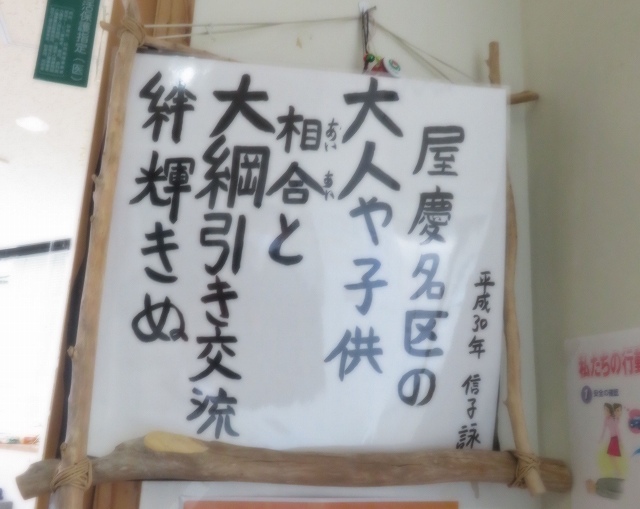 平成30年 信子詠
屋慶名区の
大人や子供
相合と
大綱引き交流
絆輝きぬ
私たちの行動